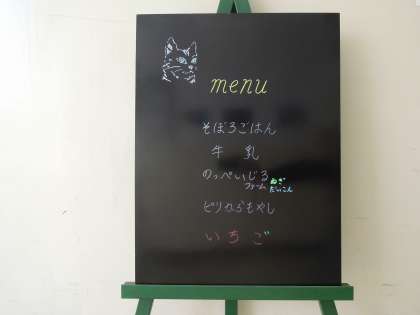 menu
そぼろごはん
牛乳
のっぺいじる
ファーム ねぎ
だいこん
ピリからもやし
いちご